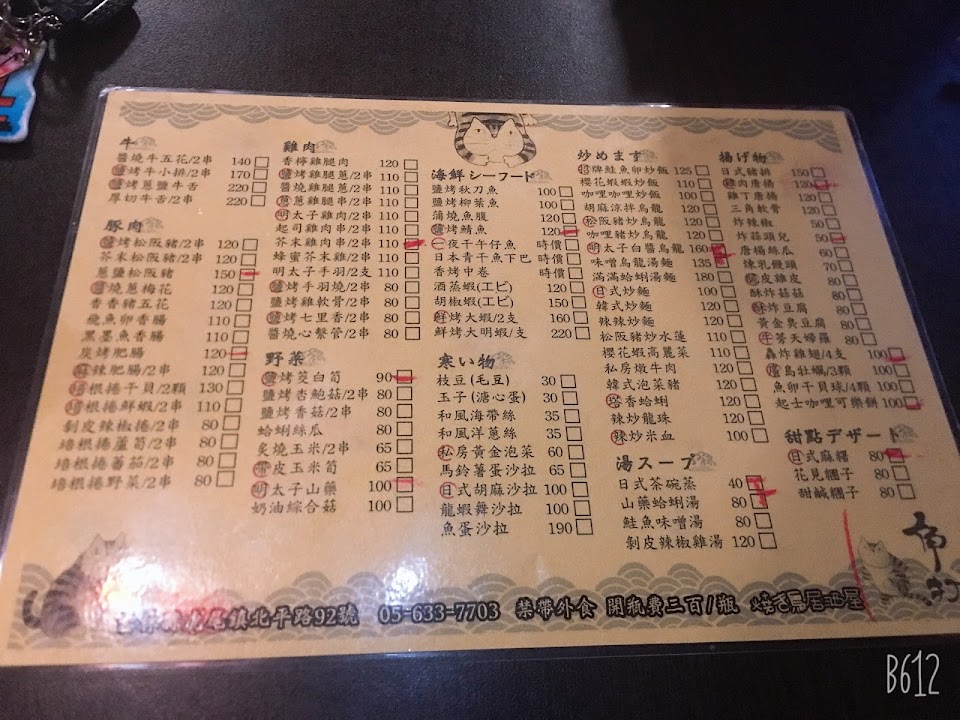 牛
醬燒牛五花/2串 140
鹽烤牛小排/2串 170
鹽烤蔥鹽牛舌 220
厚切牛舌/2串 220
豚肉
鹽烤松阪豬/2串 120
芥末松阪豬/2串 120
蔥鹽松阪豬 150
鹽燒蔥梅花 120
香香豬五花 120
飛魚卵香腸 110
黑墨魚香腸 110
炭烤肥腸 120
麻辣肥腸/2串 120
培根捲干貝/2顆 130
培根捲鮮蝦/2串 110
剝皮辣椒捲/2串 80
培根捲蘆筍/2串 80
培根捲蕃茄/2串 80
培根捲野菜/2串 80
雞肉
香檸雞腿肉 120
鹽烤雞腿蔥/2串 110
醬燒雞腿蔥/2串 110
蔥蔥雞腿串/2串 110
明太子雞肉/2串 110
起司雞肉串/2串 110
芥末雞肉串/2串 110
蜂蜜芥末雞/2串 110
明太子手羽/2支 110
鹽烤手羽燒/2串 80
鹽烤雞軟骨/2串 80
鹽烤七里香/2串 80
醬燒心繫管/2串 80
野菜
鹽烤筊白筍 90
鹽烤杏鮑菇/2串 80
鹽烤香菇/2串 80
蛤蜊絲瓜 80
炙燒玉米/2串 65
帶皮玉米筍 65
明太子山藥 100
奶油綜合菇 100
海鮮シーフード
鹽烤秋刀魚 100
鹽烤柳葉魚 100
蒲燒魚腹 120
鹽烤鯖魚 120
一夜干午仔魚 時價
日本青干魚下巴 時價
香烤中卷 時價
酒蒸蝦(エビ) 120
胡椒蝦(エビ) 150
鮮烤大蝦/2支 160
鮮烤大明蝦/2支 220
寒い物
枝豆(毛豆) 30
玉子(溏心蛋) 30
和風海帶絲 35
和風洋蔥絲 35
私房黃金泡菜 60
馬鈴薯蛋沙拉 65
日式胡麻沙拉 100
龍蝦舞沙拉 100
魚蛋沙拉 190
炒めます
招牌鮭魚卵炒飯 125
櫻花蝦蝦炒飯 110
咖哩咖哩炒飯 100
胡麻涼拌烏龍 120
松阪豬炒烏龍 120
明太子白醬烏龍 160
味噌烏龍湯麵 135
滿滿蛤蜊湯麵 180
日式炒麵 100
韓式炒麵 100
辣辣炒麵 100
松阪豬炒水蓮 110
櫻花蝦高麗菜 110
私房燉牛肉 120
韓式泡菜豬 120
塔香蛤蜊 120
辣炒龍珠 120
辣炒米血 100
湯スープ
日式茶碗蒸 40
山藥蛤蜊湯 80
鮭魚味噌湯 80
剝皮辣椒雞湯 120
揚げ物
日式豬排 150
雞肉唐揚 120
雞丁唐揚 120
三角軟骨 120
炸辣椒 50
炸蒜頭兒 50
唐揚絲瓜 60
煉乳饅頭 70
脆皮雞皮 80
酥炸菇菇 80
酥炸豆腐 80
黃金臭豆腐 80
牛蒡天婦羅 80
轟炸雞翅/4支 100
廣島牡蠣/3顆 100
魚卵干貝球/4顆 100
起士咖哩可樂餅 100
甜點デザート
日式麻糬 80
花見糰子 80
甜鹹糰子 80
虎尾鎮北平路92號 05-633-7703 禁帶外食 開瓶費三百/瓶
B612